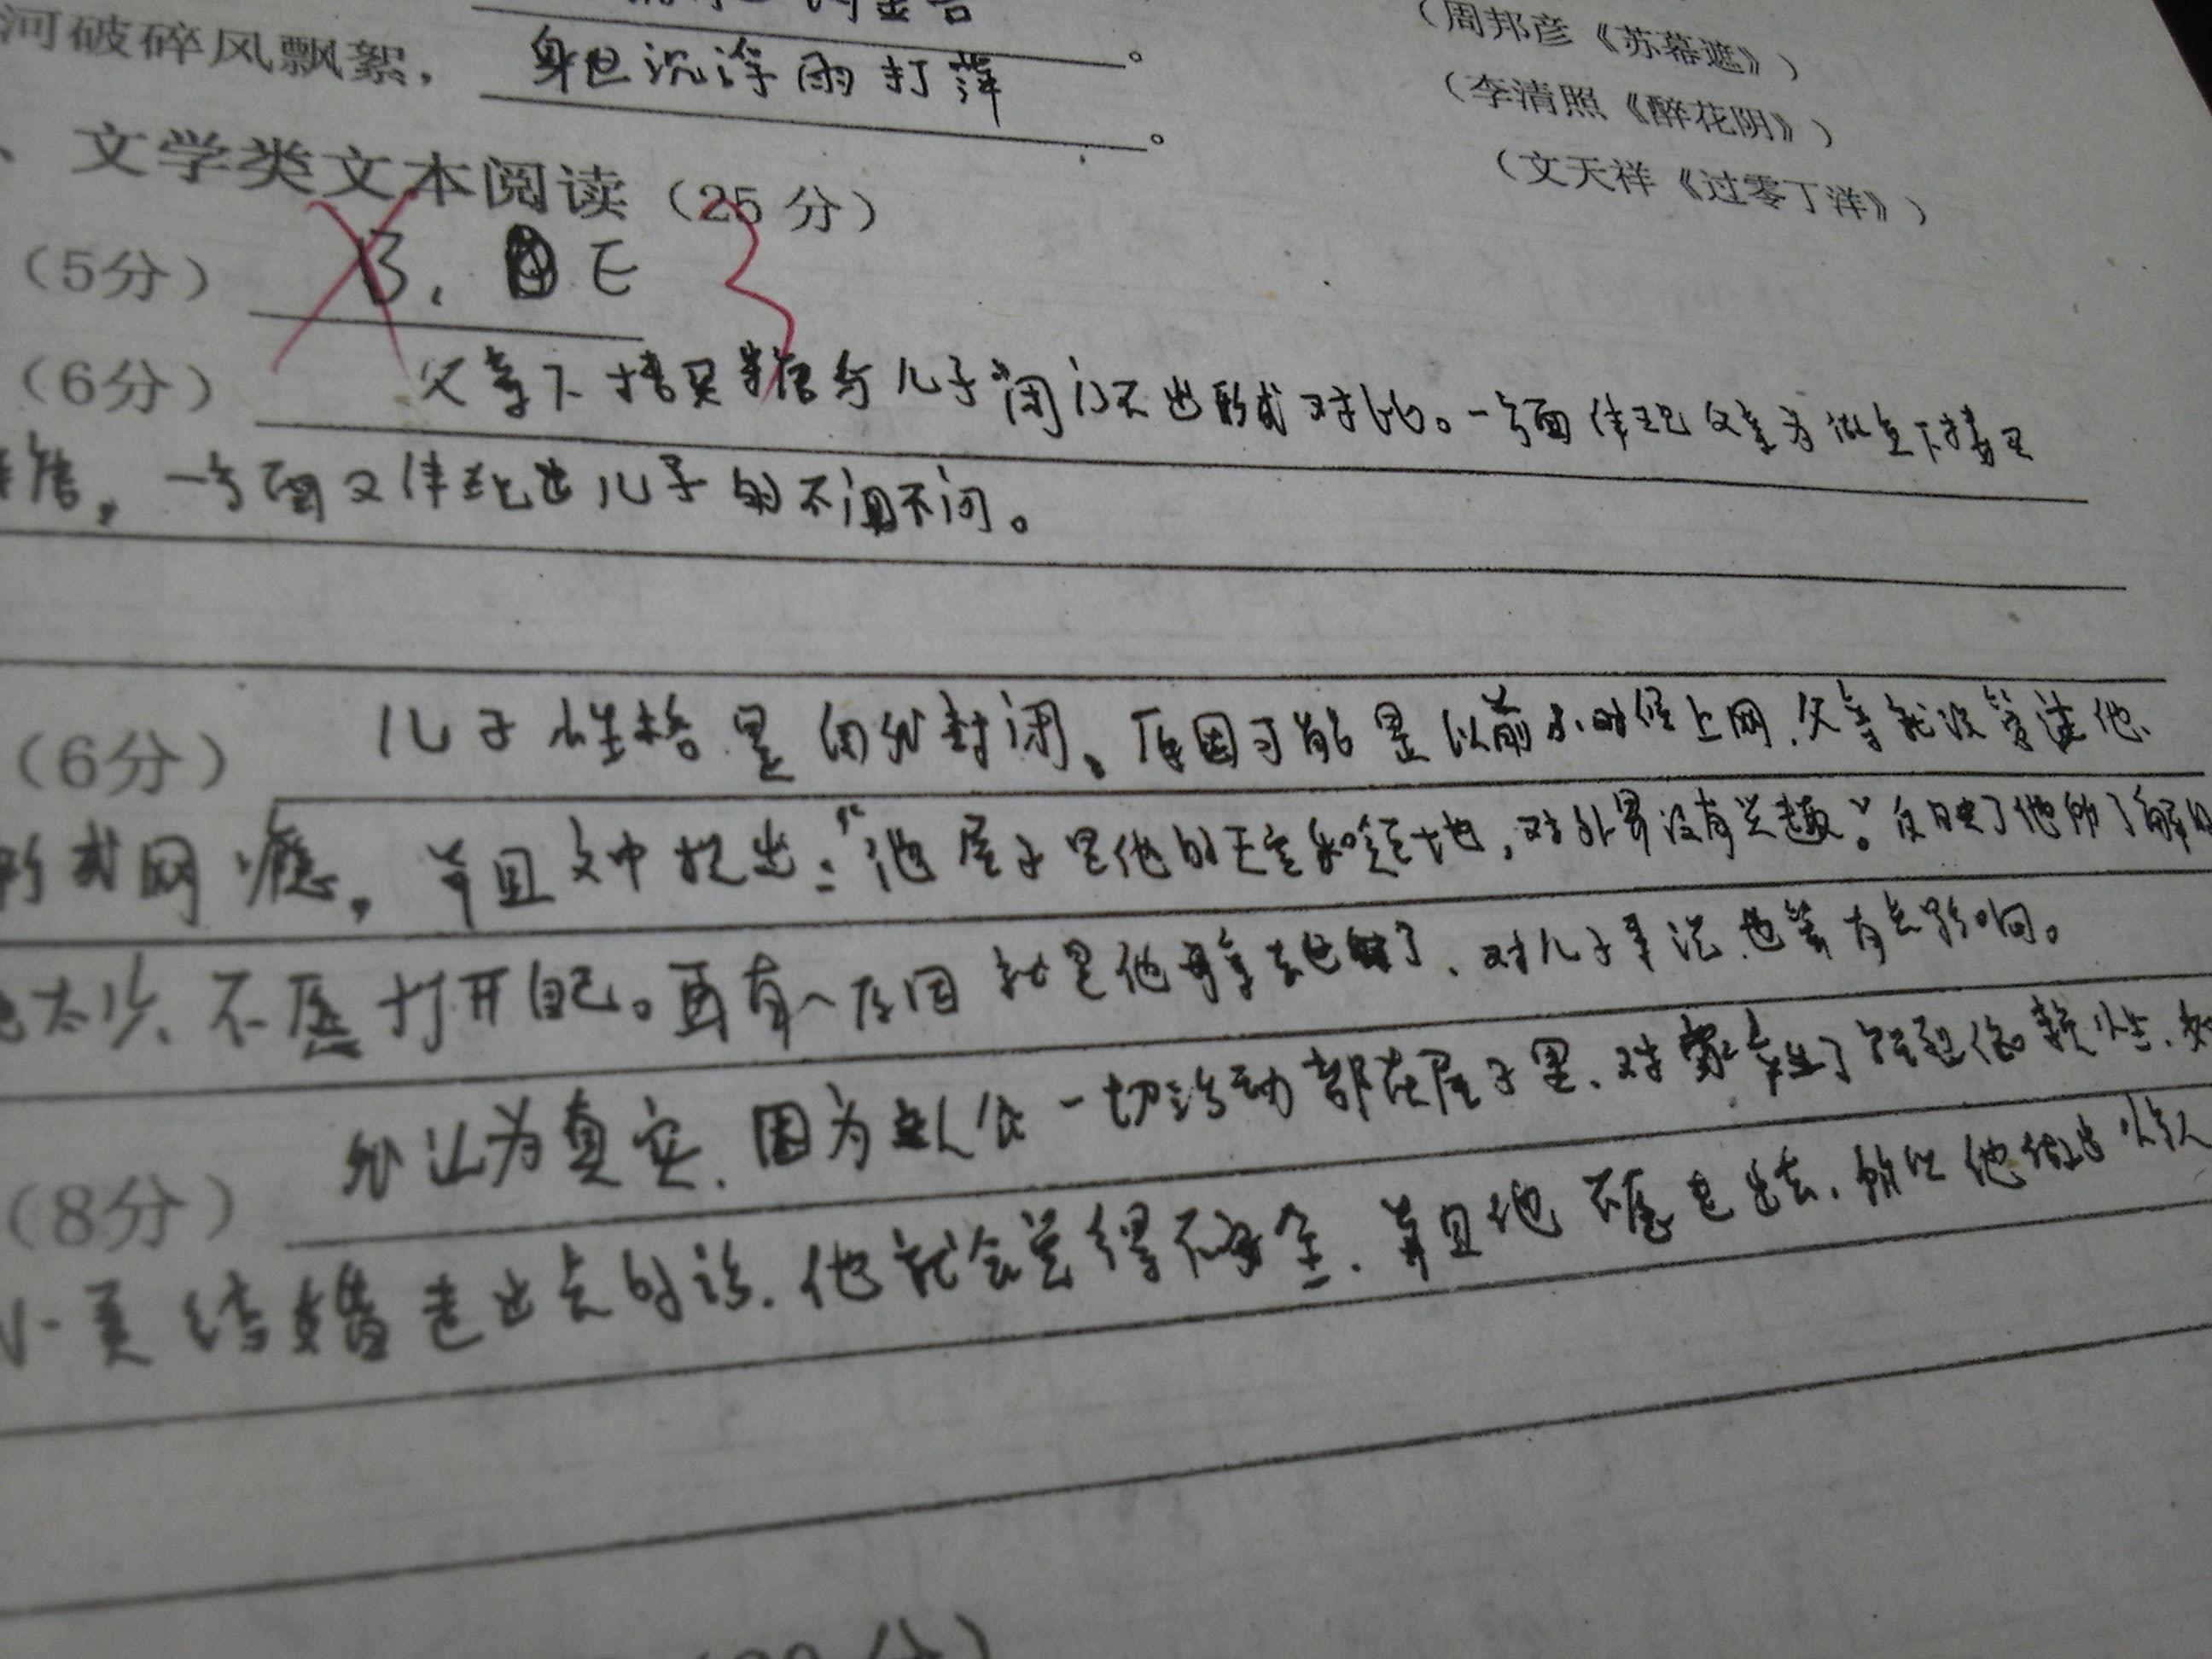 河破碎风飘絮，身世沉浮雨打萍。
（周邦彦《苏幕遮》）
（李清照《醉花阴》）
（文天祥《过零丁洋》）
、文学类文本阅读（25分）
（5分）B. E
（6分）父亲下 与儿子闭门不出形成对比。一方面体现父亲为
一方面又体现出儿子的不闻不问。
（6分）儿子性格是 封闭、原因可能是以前小时候上网，父亲就没管过他、
形成网瘾，并且文中提出：“他屋子是他的 领土地，对外界没有兴趣”。反映了他的了解
太少、不愿打开自己。再有一原因就是他母亲去世了，对儿子来说也算有点影响。
（8分）认为真实，因为主人公一切活动都在屋子里，对家产生了 依赖性，如
小美结婚走出去的话，他就会觉得不安全，并且他不愿走出去，所以他做出
分）